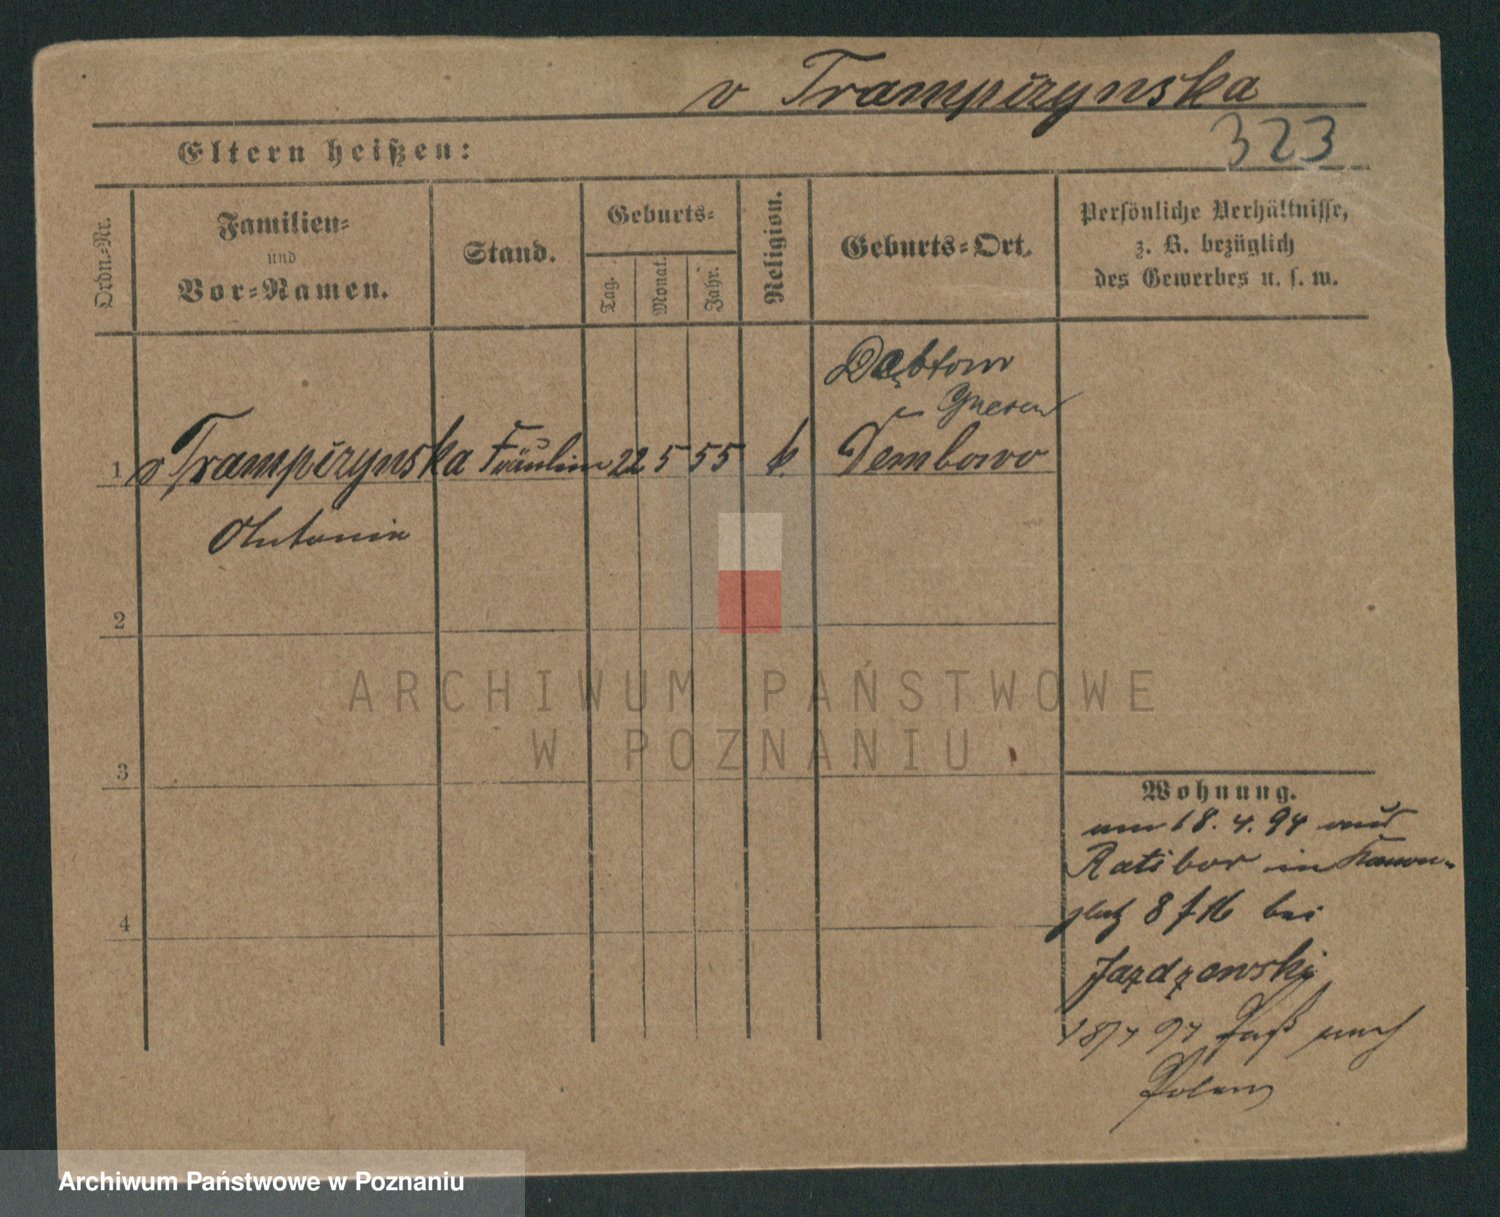 v Trampczynska
323
Eltern heißen:
Ordn.-Nr.
Familien-
und
Vor-Namen.
Stand.
Geburts-
Tag.
Monat.
Jahr.
Religion.
Geburts-Ort.
Persönliche Verhältnisse,
z. B. bezüglich
des Gewerbes u. s. w.
Dębłowo
Gnesen
1 v Trampczynska Fräulein 22 5 55 k. Dembowo
Antonie
2
3
4
ARCHIWUM PAŃSTWOWE
W POZNANIU
Wohnung.
am 18. 4. 94 aus
Ratibor in Kanon-
platz 8 f 16 bei
Jazdzewski
18/4 97 Paß nach
Polen
Archiwum Państwowe w Poznaniu